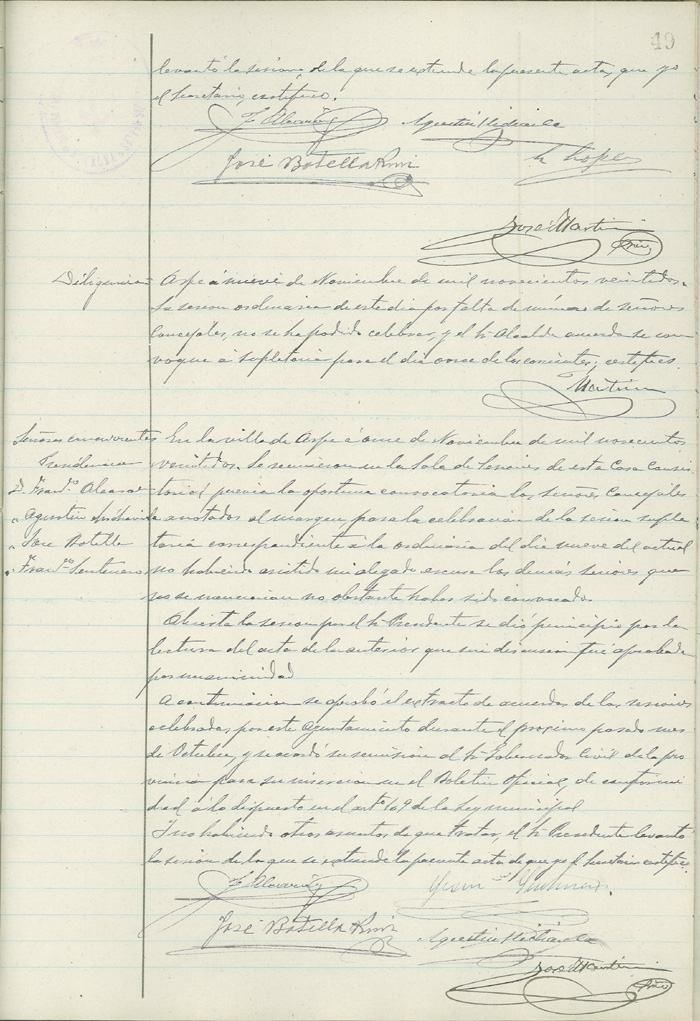 49
levantó la sesión, de la que se extiende la presente acta, que yo
el Secretario, certifico.
Agustín
José Botella
López
José Martín
Diligencia
Aspe á nueve de Noviembre de mil novecientos veintidos.
La sesion ordinaria de este dia por falta de número de señores
Concejales, no se ha podido celebrar, y el Sr. Alcalde acuerda se con
voque á supletoria para el dia once de los corrientes; certifico.
Martín
Señores concurrentes
Presidencia
D. Fran.co
" Agustin
" José Botella
" Fran.co
En la villa de Aspe á once de Noviembre de mil novecientos
veintidos. Se reunieron en la Sala de Sesiones de esta Casa Consis
torial previa la oportuna convocatoria los señores Concejales
anotados al margen para la celebracion de la sesion suple
toria correspondiente á la ordinaria del dia nueve del actual
no habiendo asistido ni alegado escusa los demás señores que
no se mencionan no obstante haber sido convocados.
Abierta la sesion por el Sr. Presidente se dió principio por la
lectura del acta de la anterior que sin discusion fué aprobada
por unanimidad
A continuacion se aprobó el extracto de acuerdos de las sesiones
celebradas por este Ayuntamiento durante el proximo pasado mes
de Octubre, y se acordó su remision al Sr. Gobernador Civil de la pro
vincia para su insercion en el Boletin Oficial, de conformi
dad á lo dispuesto en el artº 109 de la Ley municipal
Y no habiendo otros asuntos de que tratar, el Sr. Presidente levantó
la sesión de la que se extiende la presente acta de que yo el Secretario certifico.
José Botella
Agustín
José Martín